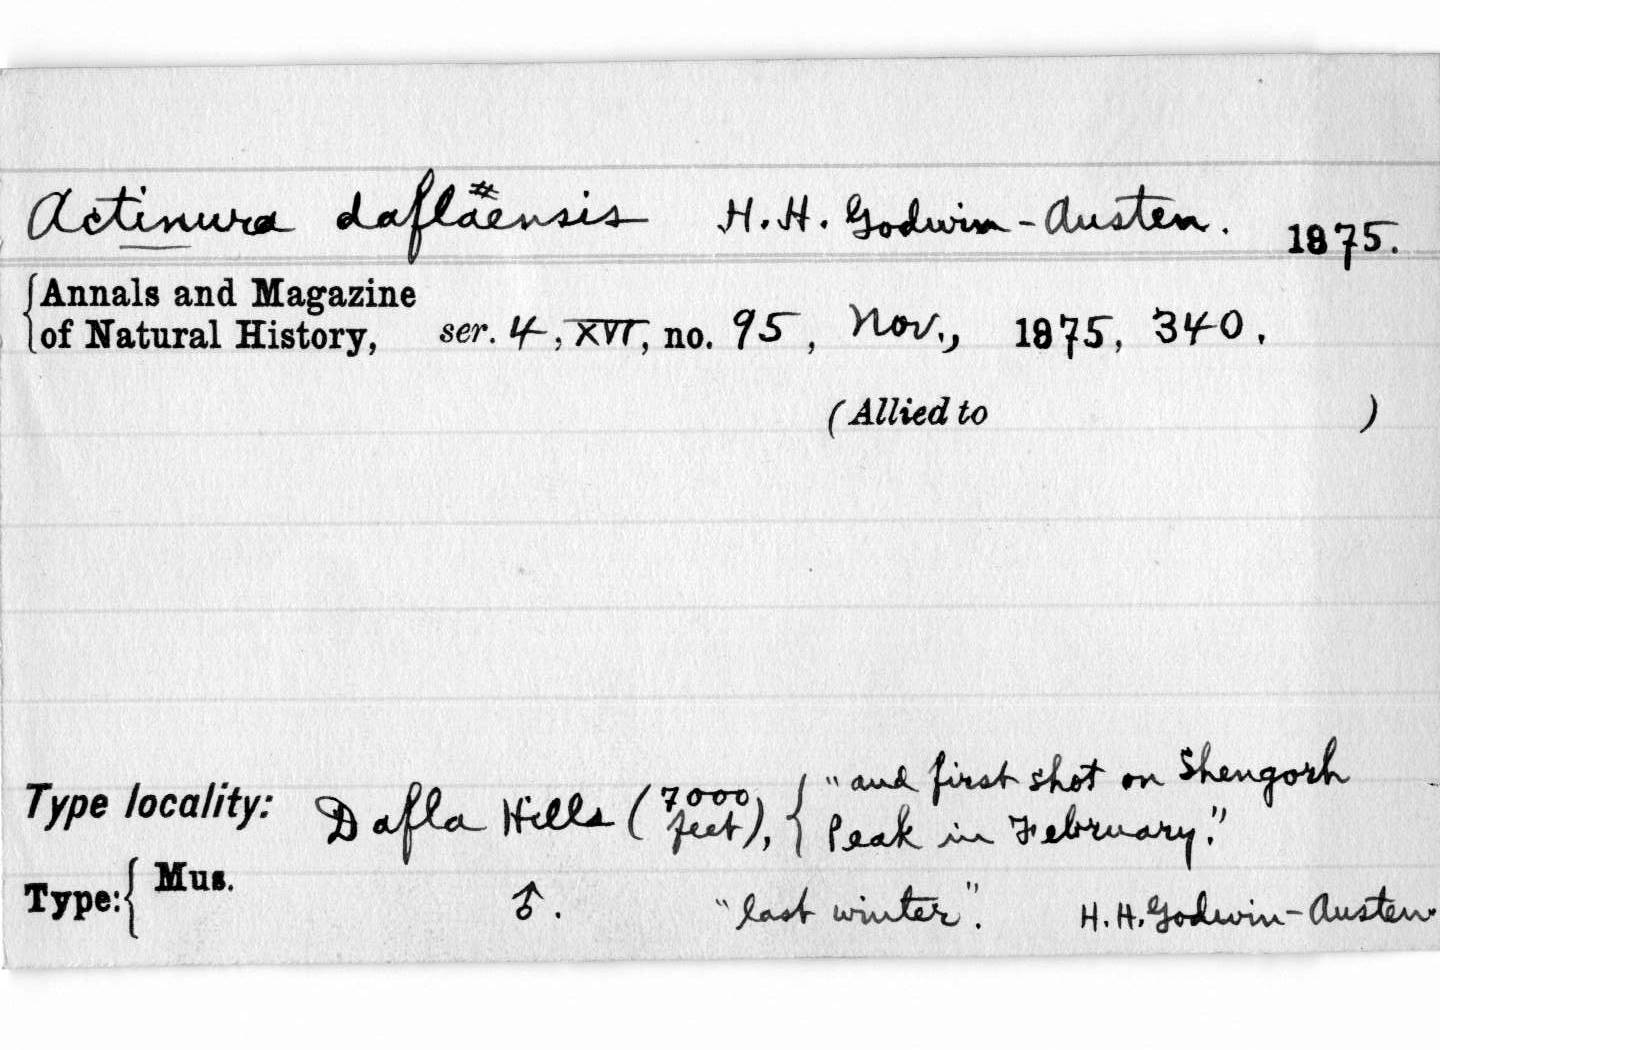 Actinura daflaensis H. H. Godwin-Austen. 1875.
Annals and Magazine
of Natural History, ser. 4, XVI, no. 95, Nov., 1875, 340.
(Allied to )
Type locality: Dafla Hills (7000 feet), "and first shot on Shengorh
Peak in February."
Type: Mus. ♂. "last winter". H. H. Godwin-Austen.